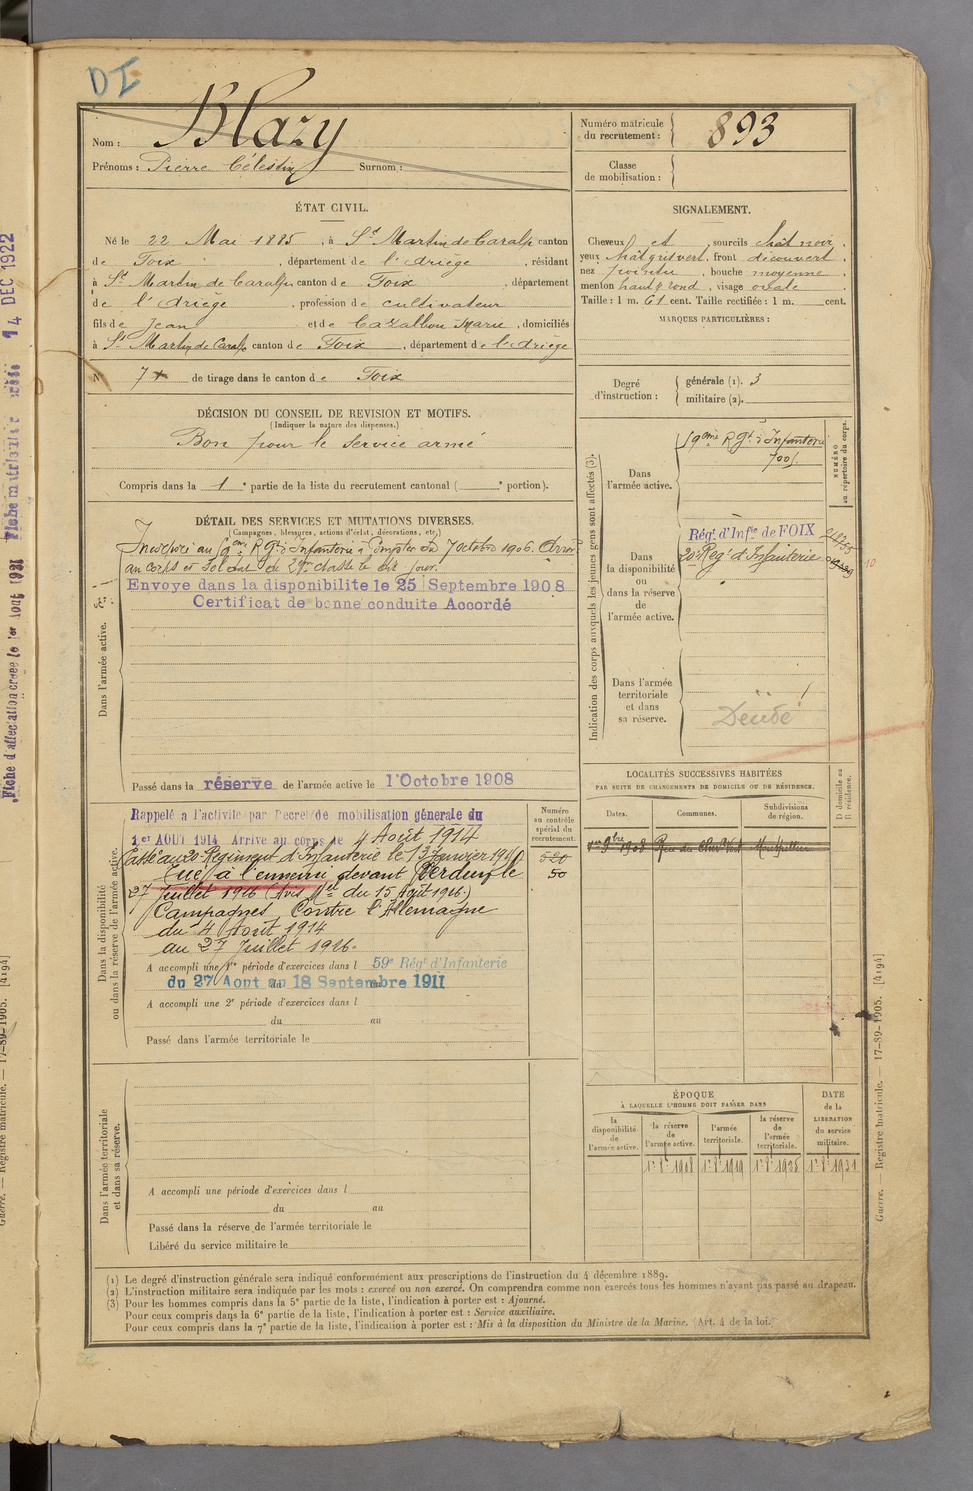 DI
Nom : Blazy
Prénoms : Pierre Célestin Surnom :
Numéro matricule du recrutement : 893
Classe de mobilisation :
ÉTAT CIVIL.
Né le 22 Mai 1885, à St Martin de Caralp canton
de Foix, département de l'Ariège, résidant
à St Martin de Caralp canton de Foix, département
de l'Ariège, profession de cultivateur
fils de Jean et de Cazalbou Marie, domiciliés
à St Martin de Caralp canton de Foix, département de l'Ariège
N° 7 de tirage dans le canton de Foix
SIGNALEMENT.
Cheveux et sourcils chât noir,
yeux chât gris vert, front découvert,
nez pointu, bouche moyenne,
menton haut & rond, visage ovale.
Taille : 1 m. 61 cent. Taille rectifiée : 1 m. cent.
MARQUES PARTICULIÈRES :
Degré d'instruction : générale (1). 3
militaire (2).
DÉCISION DU CONSEIL DE REVISION ET MOTIFS.
(Indiquer la nature des dispenses.)
Bon pour le service armé
Compris dans la 1e partie de la liste du recrutement cantonal ( e portion).
DÉTAIL DES SERVICES ET MUTATIONS DIVERSES.
(Campagnes, blessures, actions d'éclat, décorations, etc.)
Dans l'armée active.
Incorporé au 59ème Rgt d'Infanterie à compter du 7 octobre 1906. Arrivé
au corps et soldat de 2e classe le dit jour.
Envoye dans la disponibilite le 25 Septembre 1908
Certificat de bonne conduite Accordé
Passé dans la réserve de l'armée active le 1 Octobre 1908
Dans la disponibilité ou dans la réserve de l'armée active.
Rappelé a l'activite par Decret de mobilisation génerale du
1er AOUT 1914 Arrive au corps le 4 Août 1914
Passé au 20e Régiment d'Infanterie le 13 Janvier 1916
Tué à l'ennemi devant Verdun le
27 Juillet 1916 (Avis Mel du 15 Août 1916.)
Campagnes Contre l'Allemagne
du 4 Août 1914
au 27 Juillet 1916.
A accompli une 1re période d'exercices dans l 59e Régt d'Infanterie
du 27 Aout au 18 Septembre 1911
A accompli une 2e période d'exercices dans l
du au
Passé dans l'armée territoriale le
Numéro au contrôle spécial du recrutement.
520
50
Dans l'armée territoriale et dans sa réserve.
A accompli une période d'exercices dans l
du au
Passé dans la réserve de l'armée territoriale le
Libéré du service militaire le
Indication des corps auxquels les jeunes gens sont affectés (3).
NUMÉRO au répertoire du corps.
Dans l'armée active.
59ème Rgt d'Infanterie
Dans la disponibilité ou dans la réserve de l'armée active.
Régt d'Infie de FOIX
20e Régt d'Infanterie
10
Dans l'armée territoriale et dans sa réserve.
Décédé
LOCALITÉS SUCCESSIVES HABITÉES
PAR SUITE DE CHANGEMENTS DE DOMICILE OU DE RÉSIDENCE.
Dates.
Communes.
Subdivisions de région.
D domicile ou R résidence.
Montpellier
ÉPOQUE
À LAQUELLE L'HOMME DOIT PASSER DANS
DATE de la LIBÉRATION du service militaire.
la disponibilité de l'armée active.
la réserve de l'armée active.
l'armée territoriale.
la réserve de l'armée territoriale.
1r 8e 1908
1r 8e 1919
1r 8e 1925
1r 8e 1931
(1) Le degré d'instruction générale sera indiqué conformément aux prescriptions de l'instruction du 4 décembre 1889.
(2) L'instruction militaire sera indiquée par les mots : exercé ou non exercé. On comprendra comme non exercés tous les hommes n'ayant pas passé au drapeau.
(3) Pour les hommes compris dans la 5e partie de la liste, l'indication à porter est : Ajourné.
Pour ceux compris dans la 6e partie de la liste, l'indication à porter est : Service auxiliaire.
Pour ceux compris dans la 7e partie de la liste, l'indication à porter est : Mis à la disposition du Ministre de la Marine. (Art. 4 de la loi.)
Guerre. — Registre matricule. — 17-89-1905. [4194]
14 DEC 1922
Fiche d'affectation creee le 1er Aout 1921
Guerre. — Registre matricule. — 17-89-1905. [4194]